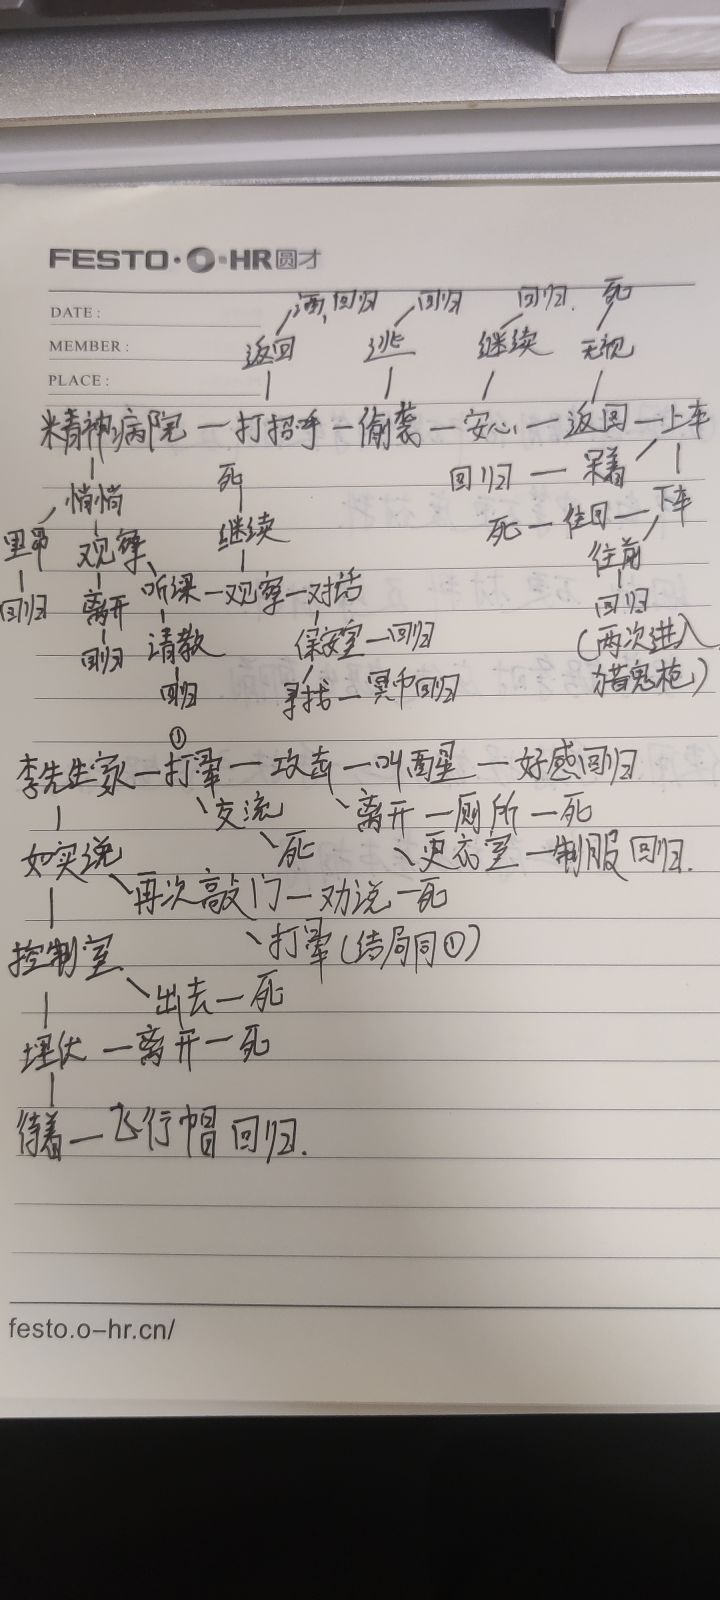 FESTO·HR圆才
DATE：
MEMBER：
PLACE：
酒，回归 回归 回归. 死
返回 逃 继续 无视
精神病院—打招呼—偷袭—安心—返回—上车
死 回归—呆着
悄悄 继续 死—往回—下车
里昂 观察 往前
回归 离开 听课—观察—对话 回归
回归 请教 保安室—回归 (两次进入
回归 寻找—冥币回归 猎鬼枪)
①
李先生家—打晕—攻击—叫醒—好感回归
交流 离开—厕所—死
如实说 死 更衣室—制服回归.
再次敲门—劝说—死
控制室 打晕(结局同①)
出去—死
埋伏—离开—死
待着—飞行帽回归.
festo.o-hr.cn/